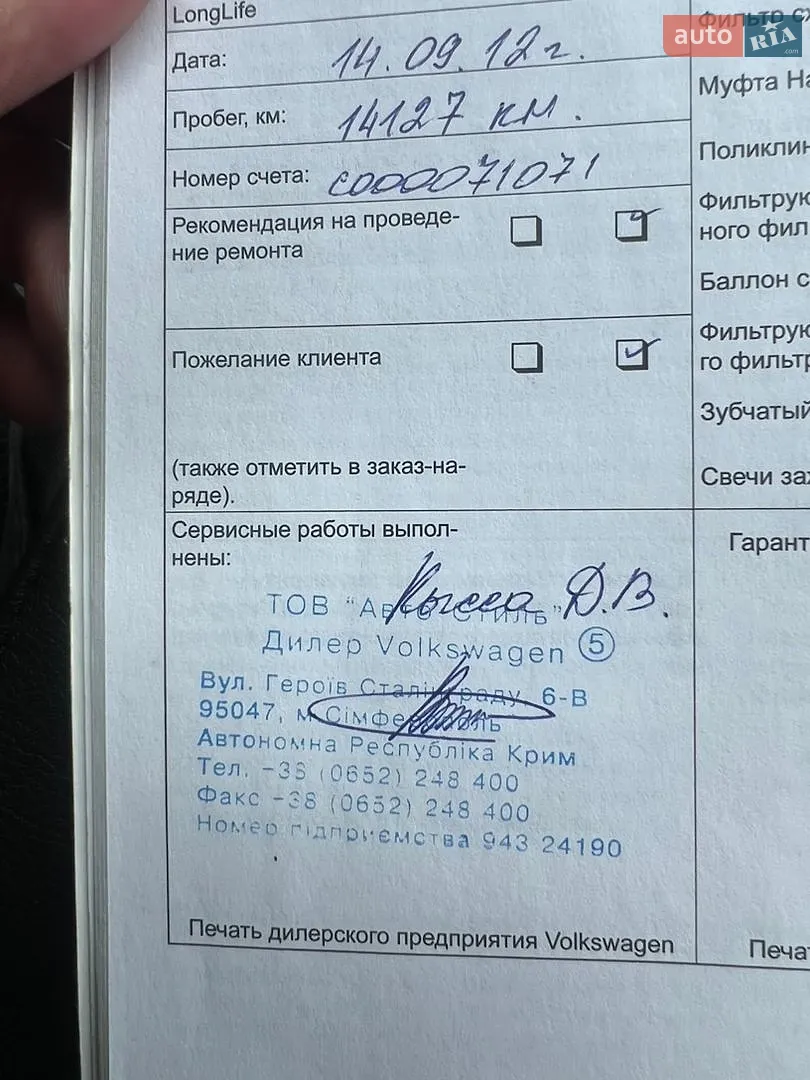 LongLife
auto RIA .com
Дата: 14.09.12г.
Пробег, км: 14127 км.
Номер счета: с000071071
Рекомендация на проведе-
ние ремонта
Пожелание клиента
(также отметить в заказ-на-
ряде).
Сервисные работы выпол-
нены:
Д.В.
ТОВ "Авто Стиль"
Дилер Volkswagen 5
Вул. Героїв Сталінграду, 6-В
95047, м. Сімферополь
Автономна Республіка Крим
Тел. -38 (0652) 248 400
Факс -38 (0652) 248 400
Номер підприємства 943 24190
Печать дилерского предприятия Volkswagen
Фильтр
Муфта На
Поликлин
Фильтрую
ного фил
Баллон с
Фильтрую
го фильт
Зубчатый
Свечи заж
Гарант
Печа